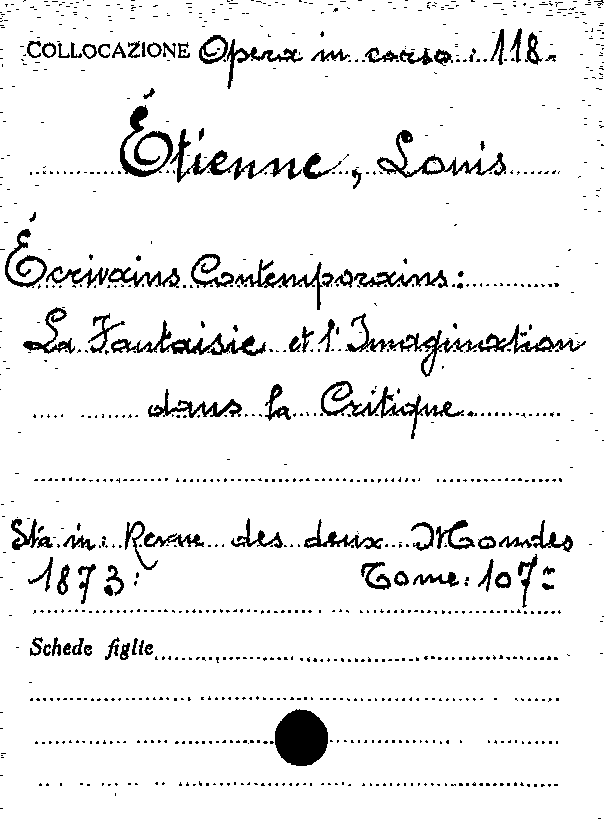 COLLOCAZIONE Opera in corso: 118.
Étienne, Louis
Écrivains Contemporains:
La Fantaisie et l'Imagination
dans la Critique.
Sta in: Revue des deux Mondes
1873: Tome: 107=
Schede figlie